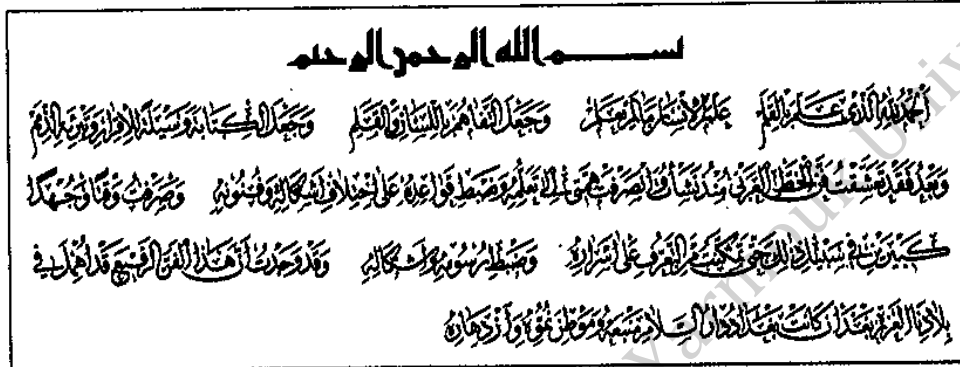 بسم الله الرحمن الرحيم
الحمد لله الذي علم بالقلم علم الإنسان ما لم يعلم وجعل التفاهم باللسان والقلم وجعل الكتابة وسيلة للإقرار وتبرئة الذمم
وبعد فقد تعشقت فن الخط العربي منذ نشأتي وانصرفت همتي إلى تعلمه وضبط قواعده على اختلاف أشكاله وفنونه وصرفت وقتا وجهدا
كبيرين في سبيل ذلك حتى تمكنت من التعرف على أسراره وضبط رسومه وأشكاله وقد وجدت أن هذا الفن الرفيع قد أهمل في
بلادنا بعد أن كانت بغداد دار السلام منبعه وموطن نموه وازدهاره
Yarmouk Univ